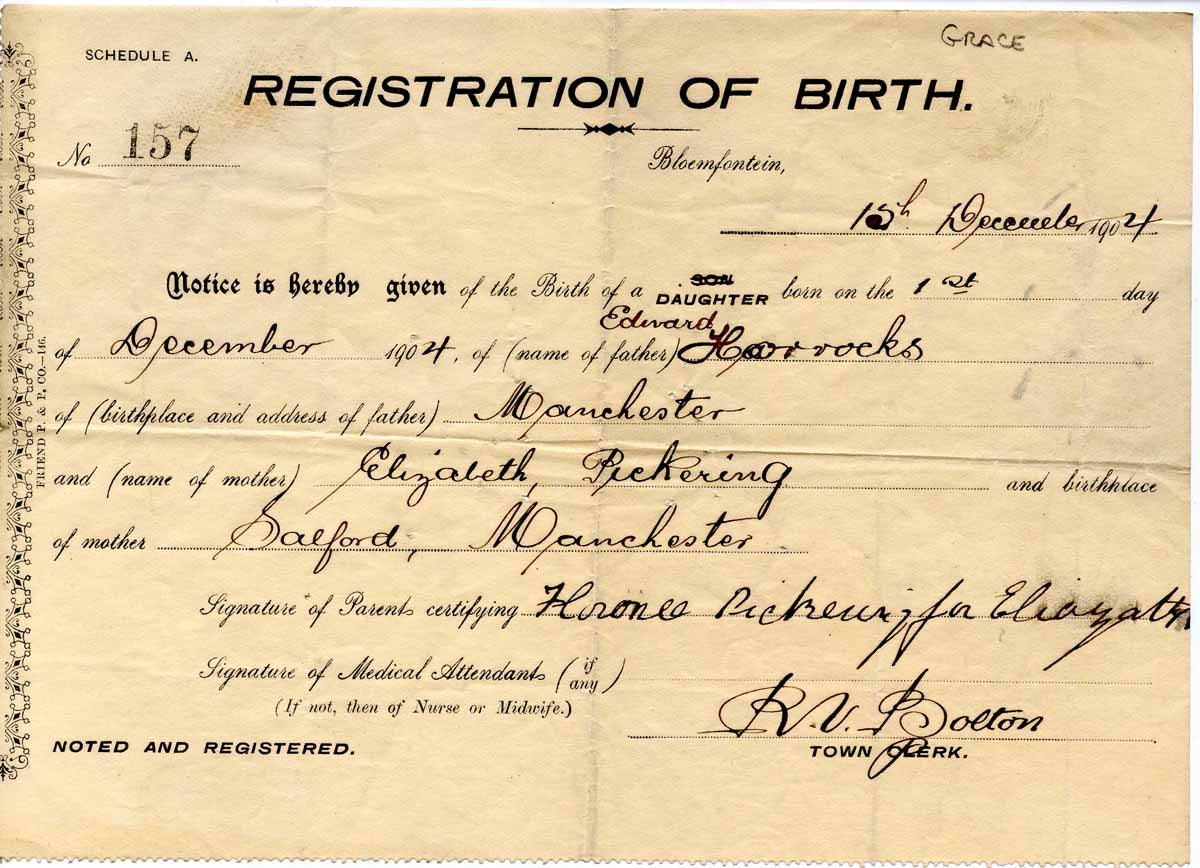 GRACE
SCHEDULE A.
REGISTRATION OF BIRTH.
No 157
Bloemfontein,
15th December 1904
Notice is hereby given of the Birth of a SON DAUGHTER born on the 1st day
of December 1904, of (name of father) Edward Horrocks
of (birthplace and address of father) Manchester
and (name of mother) Elizabeth, Pickering and birthplace
of mother Salford, Manchester
Signature of Parents certifying Pickering for
Signature of Medical Attendants (if any)
(If not, then of Nurse or Midwife.)
R. V. Bolton
NOTED AND REGISTERED.
TOWN CLERK.
FRIEND P. & P. CO.—146.